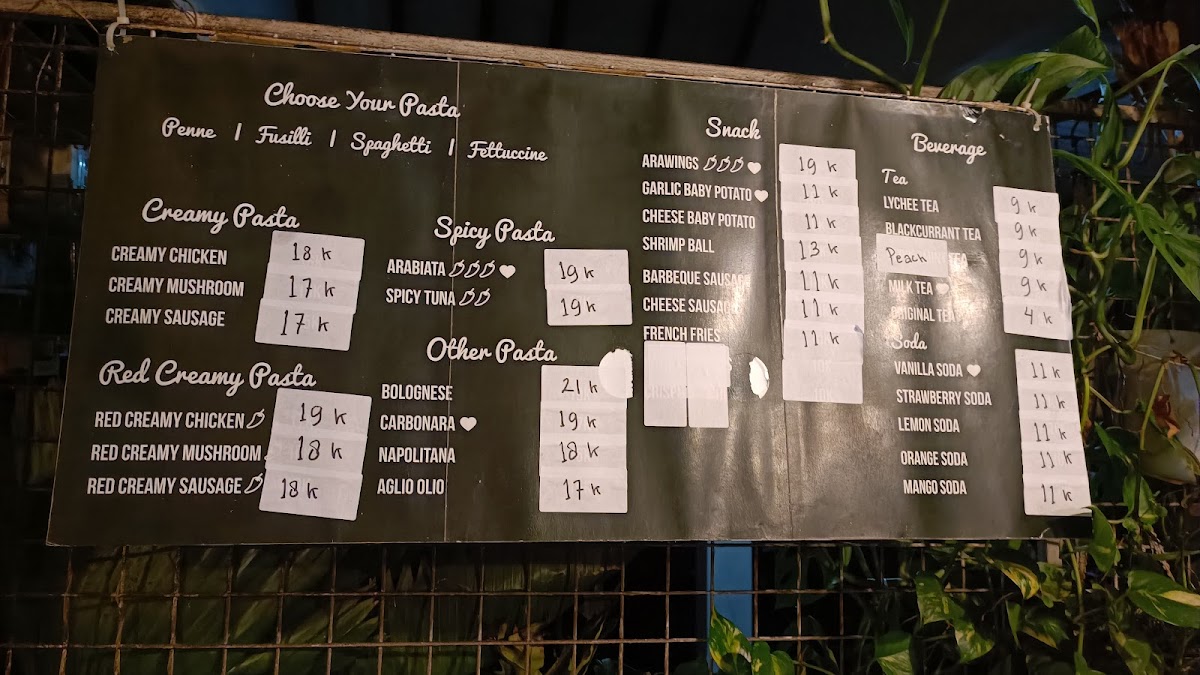 Choose Your Pasta
Penne | Fusilli | Spaghetti | Fettuccine
Creamy Pasta
CREAMY CHICKEN 18 K
CREAMY MUSHROOM 17 K
CREAMY SAUSAGE 17 K
Red Creamy Pasta
RED CREAMY CHICKEN 19 K
RED CREAMY MUSHROOM 18 K
RED CREAMY SAUSAGE 18 K
Spicy Pasta
ARABIATA 19 K
SPICY TUNA 19 K
Other Pasta
BOLOGNESE 21 K
CARBONARA 19 K
NAPOLITANA 18 K
AGLIO OLIO 17 K
Snack
ARAWINGS 19 K
GARLIC BABY POTATO 11 K
CHEESE BABY POTATO 11 K
SHRIMP BALL 13 K
BARBEQUE SAUSAGE 11 K
CHEESE SAUSAGE 11 K
FRENCH FRIES 11 K
Beverage
Tea
LYCHEE TEA 9 K
BLACKCURRANT TEA 9 K
Peach TEA 9 K
MILK TEA 9 K
ORIGINAL TEA 4 K
Soda
VANILLA SODA 11 K
STRAWBERRY SODA 11 K
LEMON SODA 11 K
ORANGE SODA 11 K
MANGO SODA 11 K